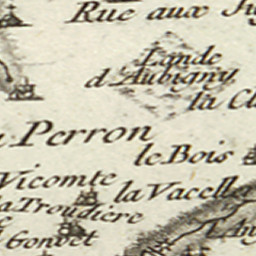 Rue aux
Lande
d'Aubigny
la
Perron
le Bois
Vicomte
la Vacelle
la Troudière
Gonvet